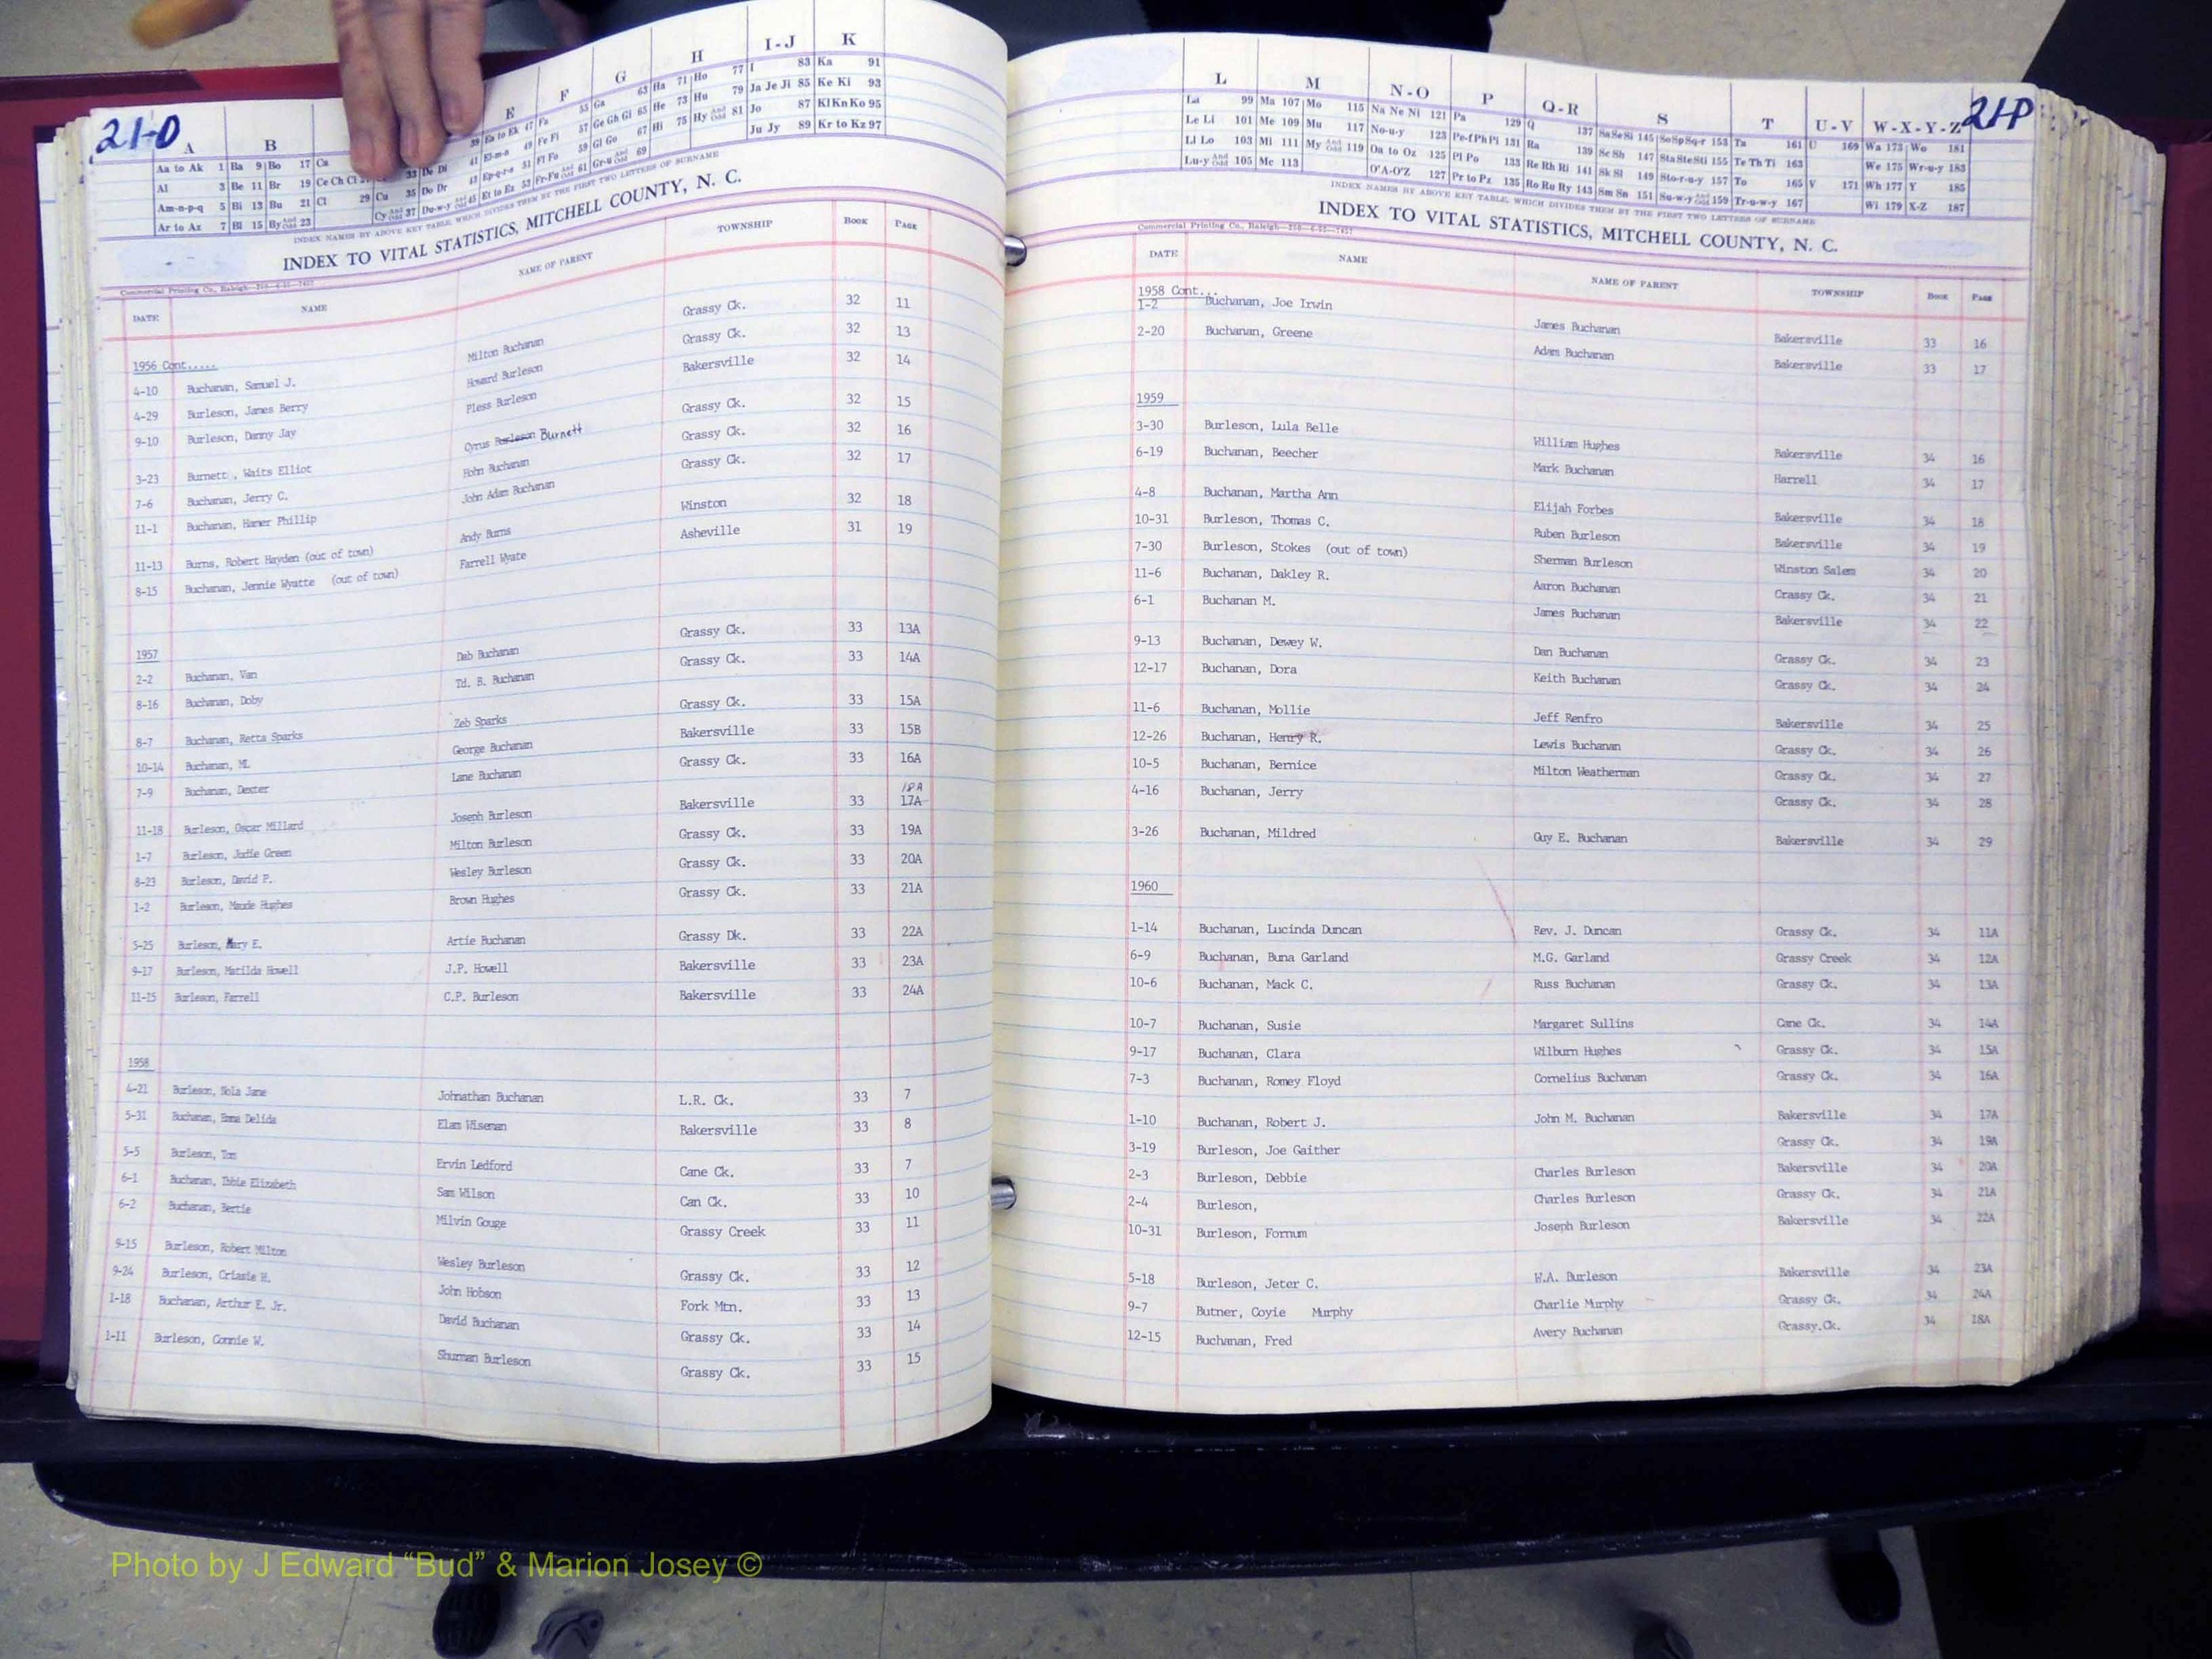 21-O
A B E F G H I-J K
Aa to Ak 1 Ba 9 Bo 17 Ca 33 De Di 39 Ea to Ek 47 Fa 55 Ga 63 Ha 71 Ho 77 I 83 Ka 91
Al 3 Be 11 Br 19 Ce Ch Ci Cu 35 Do Dr 41 El-m-n 49 Fe Fi 57 Ge Gh Gi 65 He 73 Hu 79 Ja Je Ji 85 Ke Ki 93
Am-n-p-q 5 Bi 13 Bu 21 Cl 29 Cy And Odd 37 Du-w-y 43 Ep-q-r-s 51 Fl Fo 59 Gl Go 67 Hi 75 Hy And Odd 81 Jo 87 Kl Kn Ko 95
Ar to Az 7 Bl 15 By And Odd 23 45 Et to Ez 53 Fr-Fu And Odd 61 Gr-u And Odd 69 Ju Jy 89 Kr to Kz 97
INDEX NAMES BY ABOVE KEY TABLE, WHICH DIVIDES THEM BY THE FIRST TWO LETTERS OF SURNAME
INDEX TO VITAL STATISTICS, MITCHELL COUNTY, N. C.
Commercial Printing Co., Raleigh
DATE NAME NAME OF PARENT TOWNSHIP BOOK PAGE
1956 Cont.....
4-10 Buchanan, Samuel J. Milton Buchanan Grassy Ck. 32 11
4-29 Burleson, James Berry Howard Burleson Grassy Ck. 32 13
9-10 Burleson, Danny Jay Pless Burleson Bakersville 32 14
3-23 Burnett , Waits Elliot Cyrus Burleson Burnett Grassy Ck. 32 15
7-6 Buchanan, Jerry C. Hohn Buchanan Grassy Ck. 32 16
11-1 Buchanan, Hamer Phillip John Adam Buchanan Grassy Ck. 32 17
11-13 Burns, Robert Hayden (out of town) Andy Burns Winston 32 18
8-15 Buchanan, Jennie Wyatte (out of town) Farrell Wyate Asheville 31 19
1957
2-2 Buchanan, Van Dab Buchanan Grassy Ck. 33 13A
8-16 Buchanan, Doby Td. B. Buchanan Grassy Ck. 33 14A
8-7 Buchanan, Retta Sparks Zeb Sparks Grassy Ck. 33 15A
10-14 Buchanan, ML George Buchanan Bakersville 33 15B
7-9 Buchanan, Dexter Lane Buchanan Grassy Ck. 33 16A
18A
11-18 Burleson, Oscar Millard Joseph Burleson Bakersville 33 17A
1-7 Burleson, Jodie Green Milton Burleson Grassy Ck. 33 19A
8-23 Burleson, David P. Wesley Burleson Grassy Ck. 33 20A
1-2 Burleson, Maude Hughes Brown Hughes Grassy Ck. 33 21A
5-25 Burleson, Mary E. Artie Buchanan Grassy Dk. 33 22A
9-17 Burleson, Matilda Howell J.P. Howell Bakersville 33 23A
11-15 Burleson, Farrell C.P. Burleson Bakersville 33 24A
1958
4-21 Burleson, Nola Jane Johnathan Buchanan L.R. Ck. 33 7
5-31 Buchanan, Emma Delida Elam Wiseman Bakersville 33 8
5-5 Burleson, Tom Ervin Ledford Cane Ck. 33 7
6-1 Buchanan, Ibbie Elizabeth Sam Wilson Can Ck. 33 10
6-2 Buchanan, Bertie Milvin Gouge Grassy Creek 33 11
9-15 Burleson, Robert Milton Wesley Burleson Grassy Ck. 33 12
9-24 Burleson, Crissie H. John Hobson Fork Mtn. 33 13
1-18 Buchanan, Arthur E. Jr. David Buchanan Grassy Ck. 33 14
1-11 Burleson, Connie W. Shuman Burleson Grassy Ck. 33 15
21-P
L M N-O P Q-R S T U-V W-X-Y-Z
La 99 Ma 107 Mo 115 Na Ne Ni 121 Pa 129 Q 137 Sa Se Si 145 So Sp Sq-r 153 Ta 161 U 169 Wa 173 Wo 181
Le Li 101 Me 109 Mu 117 No-u-y 123 Pe-f Ph Pi 131 Ra 139 Sc Sh 147 Sta Ste Sti 155 Te Th Ti 163 We 175 Wr-u-y 183
Ll Lo 103 Mi 111 My And Odd 119 Oa to Oz 125 Pl Po 133 Re Rh Ri 141 Sk Sl 149 Sto-r-u-y 157 To 165 V 171 Wh 177 Y 185
Lu-y And Odd 105 Mc 113 O'A-O'Z 127 Pr to Pz 135 Ro Ru Ry 143 Sm Sn 151 Su-w-y And Odd 159 Tr-u-w-y 167 Wi 179 X-Z 187
INDEX NAMES BY ABOVE KEY TABLE, WHICH DIVIDES THEM BY THE FIRST TWO LETTERS OF SURNAME
INDEX TO VITAL STATISTICS, MITCHELL COUNTY, N. C.
Commercial Printing Co., Raleigh
DATE NAME NAME OF PARENT TOWNSHIP BOOK PAGE
1958 Cont...
1-2 Buchanan, Joe Irwin James Buchanan Bakersville 33 16
2-20 Buchanan, Greene Adam Buchanan Bakersville 33 17
1959
3-30 Burleson, Lula Belle William Hughes Bakersville 34 16
6-19 Buchanan, Beecher Mark Buchanan Harrell 34 17
4-8 Buchanan, Martha Ann Elijah Forbes Bakersville 34 18
10-31 Burleson, Thomas C. Ruben Burleson Bakersville 34 19
7-30 Burleson, Stokes (out of town) Sherman Burleson Winston Salem 34 20
11-6 Buchanan, Dakley R. Aaron Buchanan Grassy Ck. 34 21
6-1 Buchanan M. James Buchanan Bakersville 34 22
9-13 Buchanan, Dewey W. Dan Buchanan Grassy Ck. 34 23
12-17 Buchanan, Dora Keith Buchanan Grassy Ck. 34 24
11-6 Buchanan, Mollie Jeff Renfro Bakersville 34 25
12-26 Buchanan, Henry R. Lewis Buchanan Grassy Ck. 34 26
10-5 Buchanan, Bernice Milton Weatherman Grassy Ck. 34 27
4-16 Buchanan, Jerry Grassy Ck. 34 28
3-26 Buchanan, Mildred Guy E. Buchanan Bakersville 34 29
1960
1-14 Buchanan, Lucinda Duncan Rev. J. Duncan Grassy Ck. 34 11A
6-9 Buchanan, Buna Garland M.G. Garland Grassy Creek 34 12A
10-6 Buchanan, Mack C. Russ Buchanan Grassy Ck. 34 13A
10-7 Buchanan, Susie Margaret Sullins Cane Ck. 34 14A
9-17 Buchanan, Clara Wilburn Hughes Grassy Ck. 34 15A
7-3 Buchanan, Romey Floyd Cornelius Buchanan Grassy Ck. 34 16A
1-10 Buchanan, Robert J. John M. Buchanan Bakersville 34 17A
3-19 Burleson, Joe Gaither Grassy Ck. 34 19A
2-3 Burleson, Debbie Charles Burleson Bakersville 34 20A
2-4 Burleson, Charles Burleson Grassy Ck. 34 21A
10-31 Burleson, Fornum Joseph Burleson Bakersville 34 22A
5-18 Burleson, Jeter C. W.A. Burleson Bakersville 34 23A
9-7 Butner, Coyie Murphy Charlie Murphy Grassy Ck. 34 24A
12-15 Buchanan, Fred Avery Buchanan Grassy.Ck. 34 18A
Photo by J Edward “Bud” & Marion Josey ©